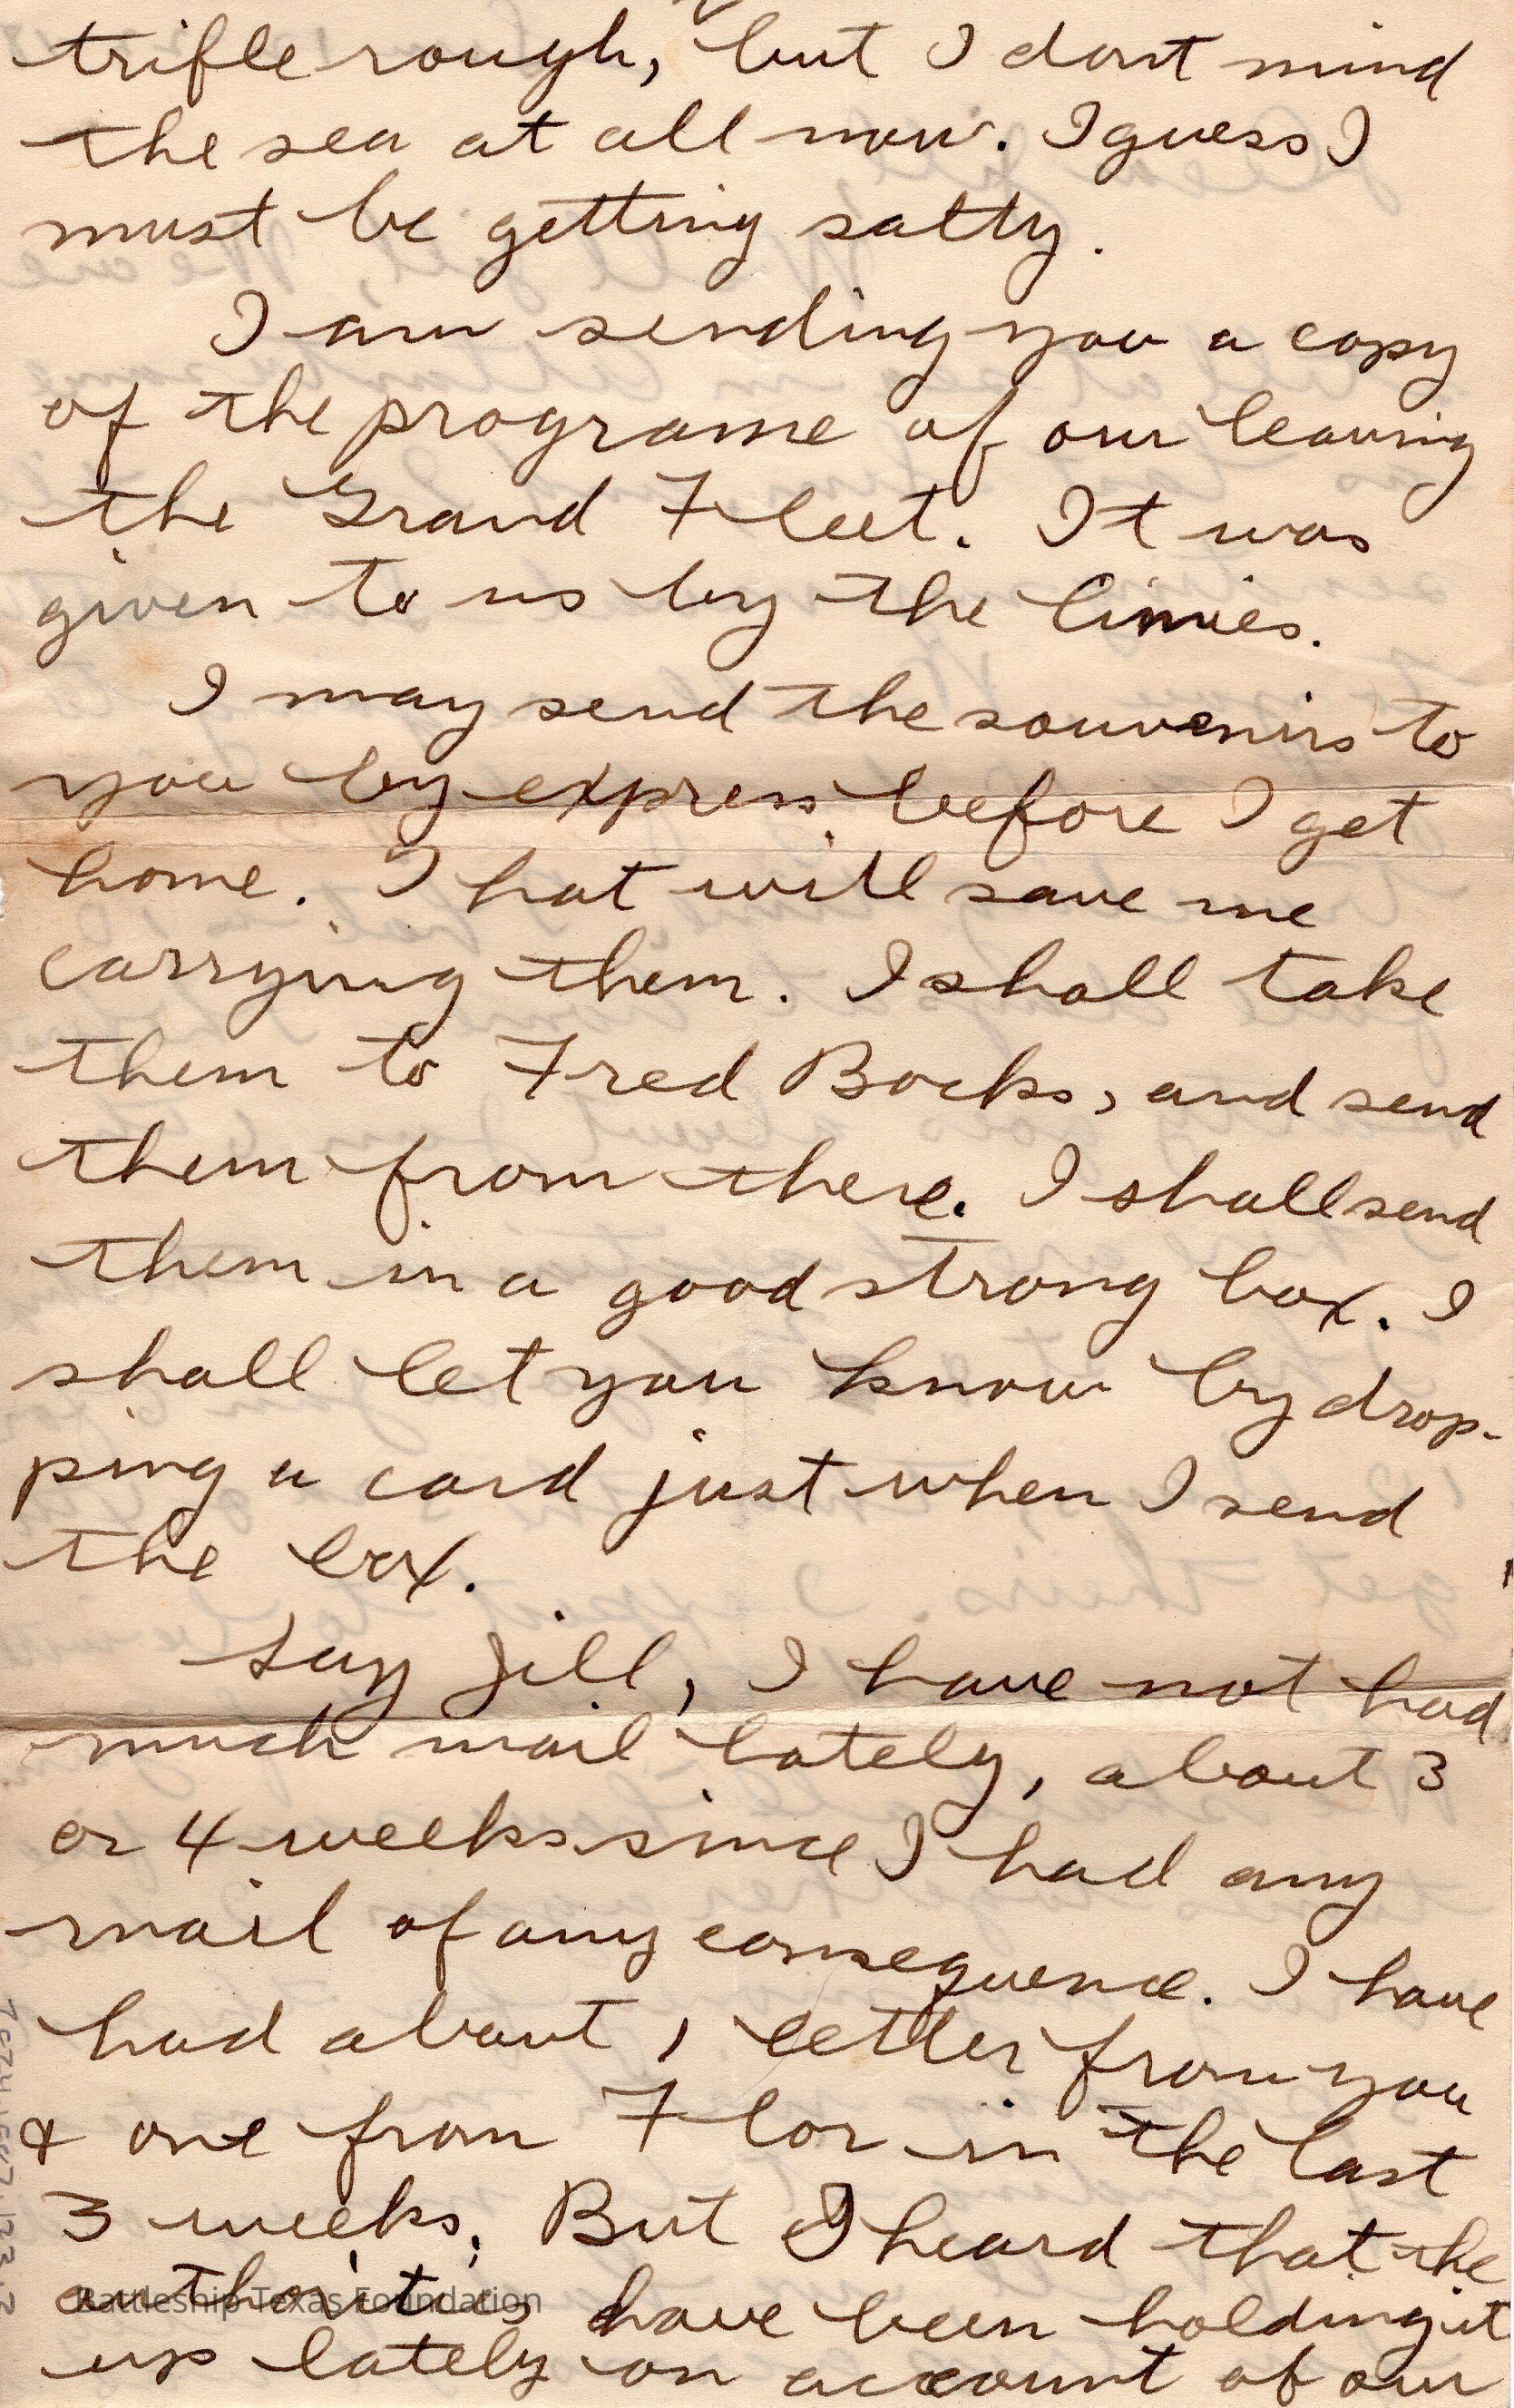 trifle rough, but I dont mind
the sea at all now. I guess I
must be getting salty.
I am sending you a copy
of the programe of our leaving
the Grand Fleet. It was
given to us by the limies.
I may send the souvenirs to
you by express before I get
home. That will save me
carrying them. I shall take
them to Fred Bocks, and send
them from there. I shall send
them in a good strong box. I
shall let you know by drop-
ping a card just when I send
the box.
Say Jill, I have not had
much mail lately, about 3
or 4 weeks since I had any
mail of any consequence. I have
had about 1 letter from you
& one from Flor in the last
3 weeks. But I heard that the
authorities have been holding it
up lately on account of our
Battleship Texas Foundation